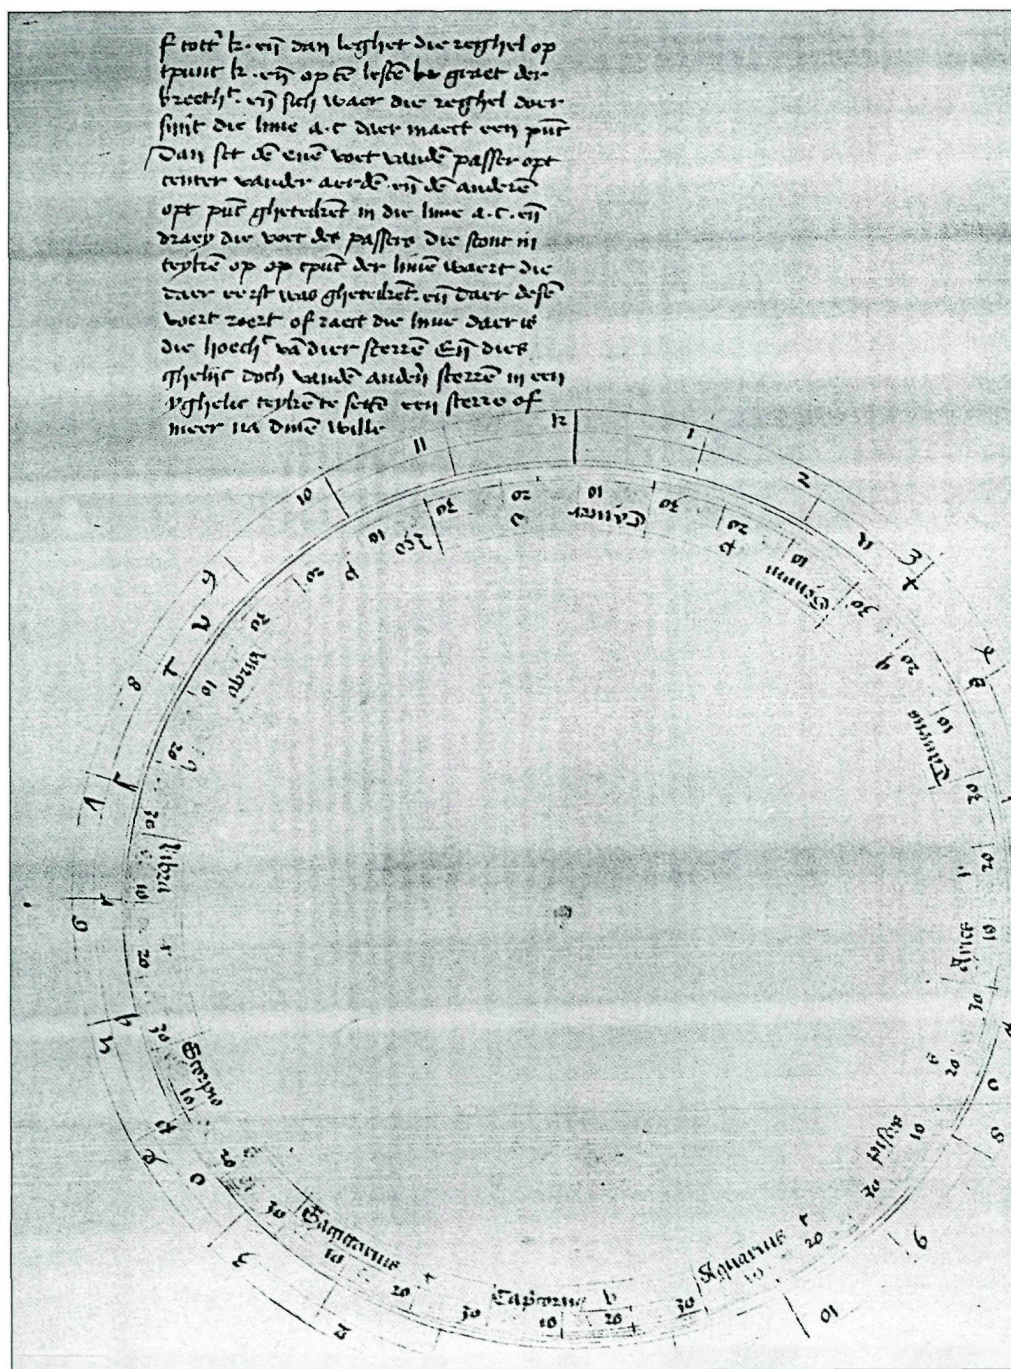 f tott' k. en̄ dan leghet die reghel op
tpunt k. en̄ op tē lestē graet der
breeth'. en̄ sich waer die reghel doer
snijt die linie a.c daer maect een pūt
Dan set dē enē voet vandē passer opt
center vander aerdē en̄ dē anderē
opt pūt gheteikēt in die linie a.c. en̄
draey die voet des passers die stont in
teykē op op tpūt der liniē waert die
daer eerst was gheteikēt. en̄ daer desē
voert roert of raect die linie daer is
die hoech' vā dier sterrē En̄ dies
ghelijc doch vandē andeñ sterrē in een
yghelic teykē te settē een sterre of
meer na dinē wille
12
1
2
3
4
8
9
10
2
3
6
7
8
9
10
11
Cancer
10
20
30
Gemini
10
20
30
Taurus
10
20
30
Aries
10
20
30
Pisces
10
20
30
Aquarius
10
20
30
Capcornus
10
20
30
Sagittarius
10
20
30
Scorpio
10
20
30
Libra
10
20
30
Virgo
10
20
30
Leo
10
20
30